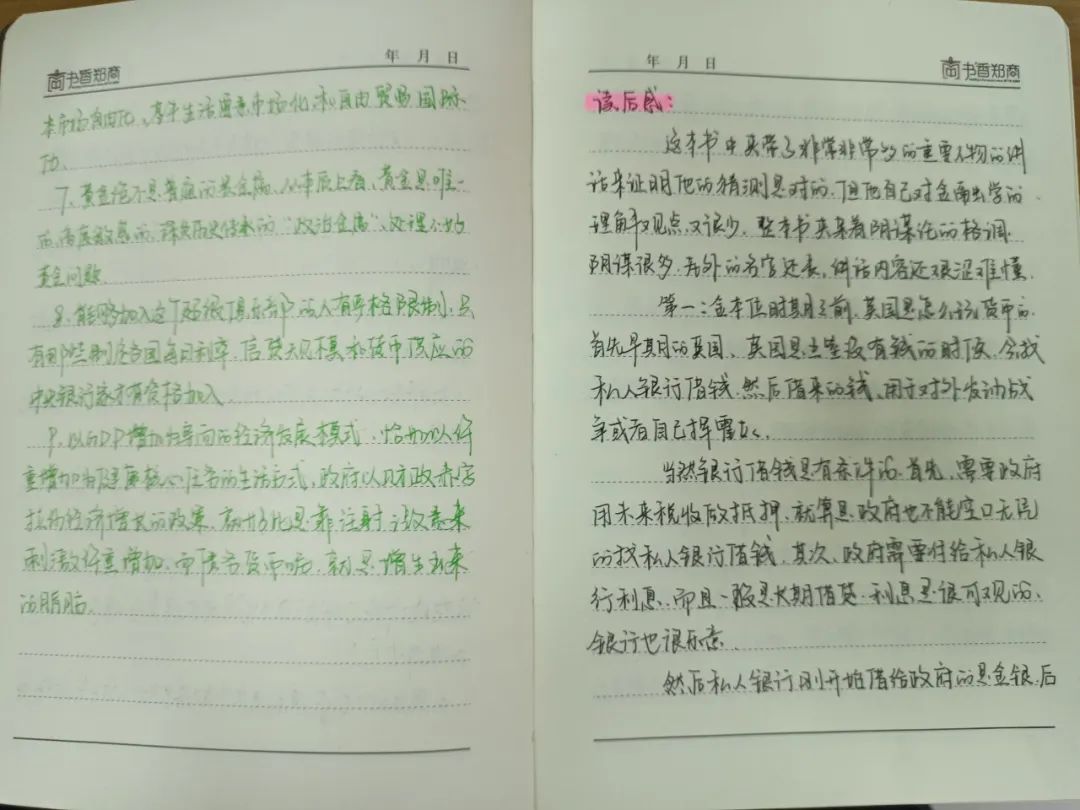 书香知商
年 月 日
本市场自由化、享乐生活要素市场化和自由贸易国际
化。
7、黄金绝不是普通的贵金属,从本质上看,黄金是唯一
的、高度敏感的、承负历史传承的“政治金属”,处理不好
黄金问题
8、能够加入这个超级俱乐部的人有严格限制,只
有那些制定各国每日利率、信贷规模和货币供应的
中央银行家才有资格加入
9、以GDP增加为导向的经济发展模式,恰如以体
重增加为健康核心任务的生活方式,政府以财政赤字
拉动经济增长的政策,好比是靠注射激素来
刺激体重增加,而债务货币呢,就是增生出来
的脂肪。
年 月 日
书香知商
读后感:
这本书中夹带了非常非常多的重要人物的讲
话来证明他的猜测是对的,但他自己对金融学的
理解和观点又很少,整本书夹杂着阴谋论的格调
阴谋很多,老外的名字还长,讲话内容还艰涩难懂。
第一:金本位时期之前,英国是怎么玩货币的
首先早期的英国,英国是国王没有钱的时候,会找
私人银行借钱,然后借来的钱,用于对外发动战
争或者自己挥霍。
当然银行借钱是有条件的,首先,需要政府
用未来税收做抵押,就算是政府也不能空口无凭
的找私人银行借钱,其次,政府需要付给私人银
行利息,而且一般是长期借贷,利息是很可观的,
银行也很乐意。
然后私人银行刚开始借给政府的是金银,后